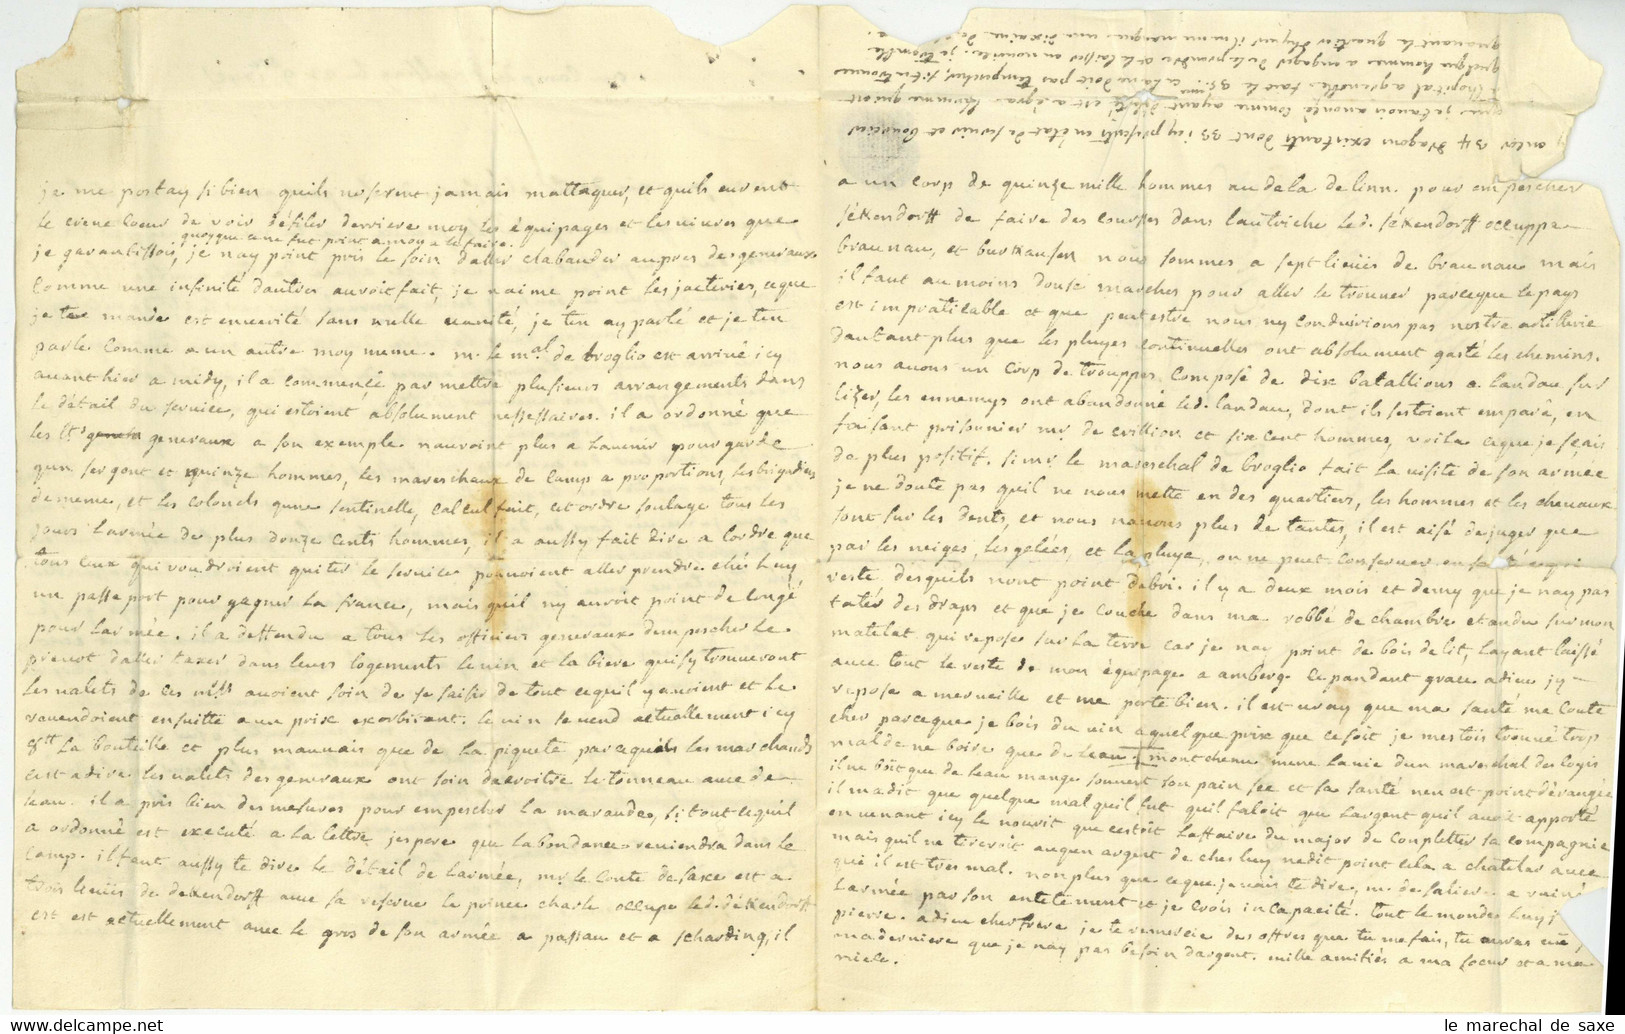 je me portay si bien quils noserent jamais mattaquer, et quils eurent
le creve coeur de voir défiler derriere moy les équipages et les vivres que
quoyque ce ne fut point a moy a le faire.
je garantissois, je nay point pris le soin daller clabauder aupres des generaux
comme une infinité dautres auroit fait, je naime point les jacteries, ce que
je te mande est en verité sans nulle vanité, je ten ay parlé et je ten
parle comme a un autre moy meme. m. le mal de broglio est arrivé icy
avant hier a midy, il a commencé par mettre plusieurs arrangements dans
le détail du service, qui estoient absolument nessessaires. il a ordonné que
les lts generaux a son exemple nauroint plus a lavenir pour garde
qun sergent et quinze hommes, les mareschaux de camp a proportions, les brigadiers
de meme, et les colonels qune sentinelle, calcul fait, cet ordre soulage tous les
jours larmée de plus douze cents hommes, il a aussy fait dire a lordre que
tous ceux qui voudroient quiter le service pouvoient aller prendre chés luy
un passeport pour gagner la france, mais quil ny auroit point de congé
pour larmée. il a deffendu a tous les officiers generaux dempescher le
prevot daller taxer dans leurs logements le vin et la biere quisy trouveront
les valets de ces mrss avoient soin de se saisir de tout cequil y avoient et le
revendoient ensuitte a un prix exorbitant. le vin se vend actuellement icy
8tt la bouteille et plus mauvais que de la piquete parcequils les marchands
cest a dire les valets des generaux ont soin dacroitre le tonneau avec de
leau. il a pris bien des mesures pour empescher la maraude, si tout cequil
a ordonné est executé a la lettre jespere que labondance reviendra dans le
camp. il faut aussy te dire le détail de larmée, mr le conte de saxe est a
trois lieues de dekendorff avec sa reserve le prince charle occupe led. dékendorff
et est actuellement avec le gros de son armée a passau et a scharding, il
a un corp de quinze mille hommes au dela de linn. pour empescher
sékendorff de faire des courses dans lautriche led. sékendorff occuppe
braunau, et burkausen nous sommes a sept lieües de braunau mais
il faut au moins douse marches pour aller le trouver parceque le pays
est impraticable et que peutestre nous ny conduirions pas nostre artillerie
dautant plus que les pluyes continuelles ont absolument gasté les chemins.
nous avons un corp de trouppes composé de dix batallions a landau sur
lizer, les ennemys ont abandonné led. landau, dont ils sestoient emparé, en
faisant prisonnier mr de crillion et six cent hommes, voila ceque je sçais
de plus positif. si mr le mareschal de broglio fait la visite de son armée
je ne doute pas quil ne nous mette en des quartiers, les hommes et les chevaux
sont sur les dents, et nous navons plus de tantes, il est aisé de juger que
par les neiges, les gelées, et la pluye, on ne peut conserver en santé ce qui
reste, desquils nont point dabri. il y a deux mois et demy que je nay pas
tatér des draps et que je couche dans ma robbe de chambre etandu sur mon
matelat qui repose sur la terre car je nay point de bois de lit, layant laissé
avec tout le reste de mon équipage a amberg. ce pandant grace a dieu jy
repose a merveille et me porte bien. il est vray que ma santé me coute
cher parceque je bois du vin a quelque prix que ce soit je mestois trouvé trop
mal de ne boire que de leau. montchenu mene la vie dun mareschal des logis
il ne boit que de leau mange souvent son pain sec et sa santé nen est point dérangée
il ma dit que quelque mal quil fut quil faloit que largent quil avoit apporté
en venant icy le nourit que cestoit laffaire du major de completter sa compagnie
mais quil ne tireroit aucun argent de ches luy ne dit point cela a chatelar avec
qui il est tres mal. non plus que ceque je vais te dire, m. de saliere a ruiné
larmée par son entetement et je crois incapacité. tout le monde luy j
pierre. adieu cher frere je te remercie des offres que tu me fais, tu auras vü
ma derniere que je nay pas besoin dargent. mille amitiés a ma soeur et a ma
niece.
ancor 34 dragons existants dont 33 icy présents en état de servir et
quelque hommes a engager de le prendre et de laisser en
le marechal de saxe